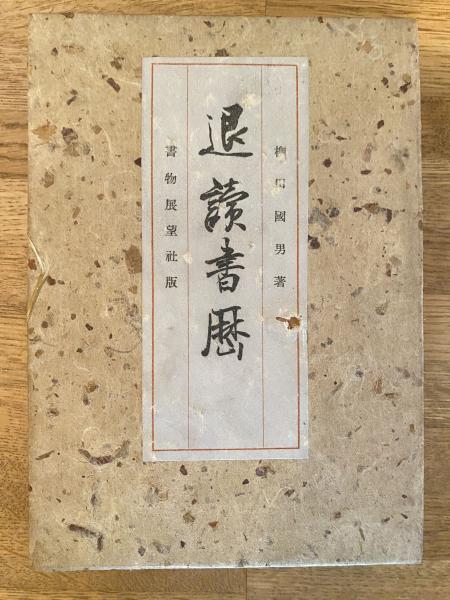 柳田國男著
退讀書歴
書物展望社版